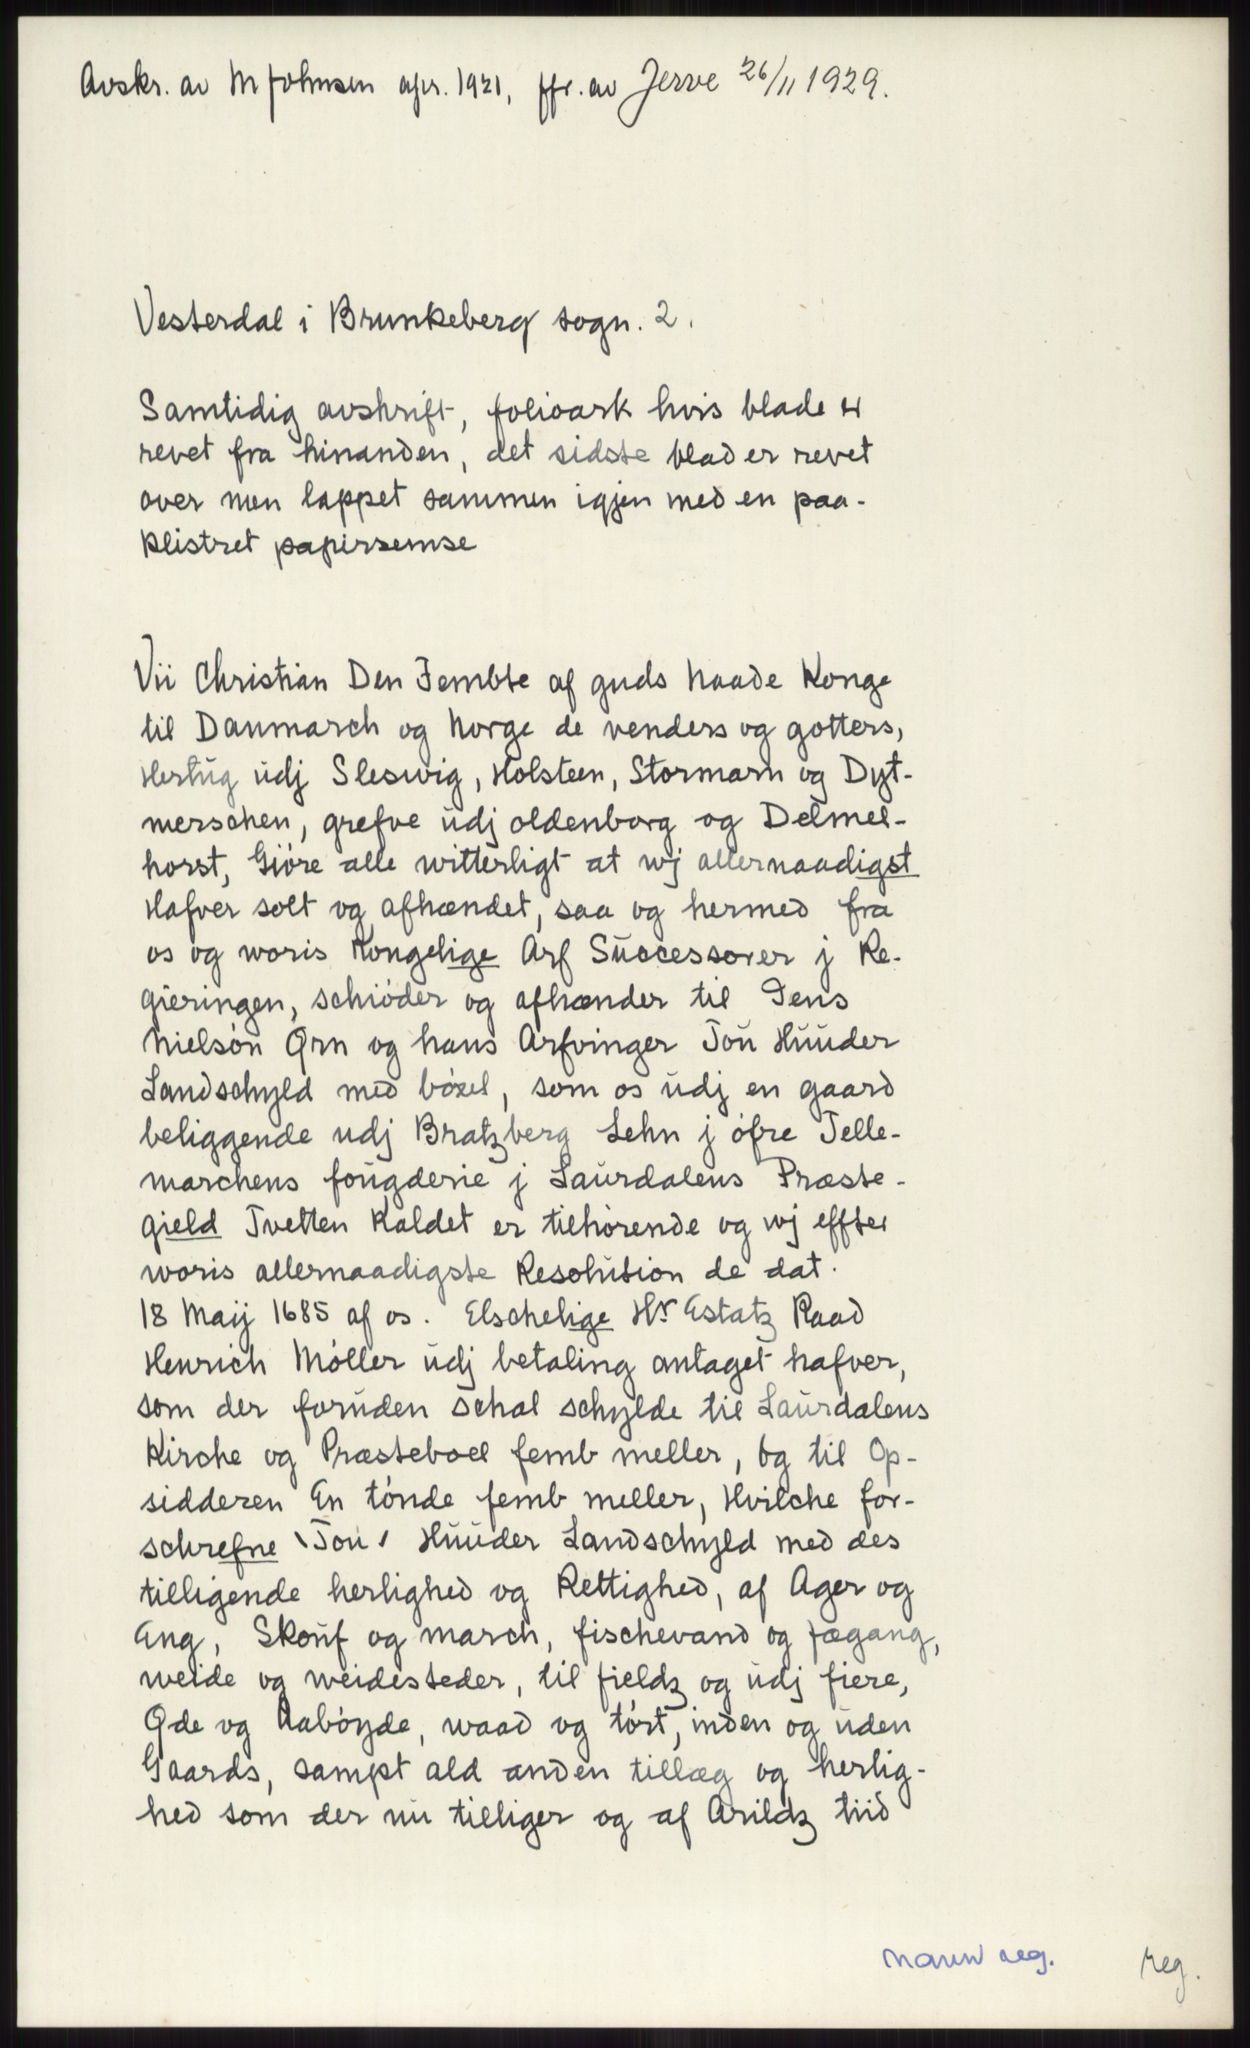 Avskr. av M Johnsen apr. 1921, jfr. av Jerve 26/11 1929.
Vesterdal i Brunkeberg sogn. 2.
Samtidig avskrift, folioark hvis blade er
revet fra hinanden, det sidste blad er revet
over men lappet sammen igjen med en paa-
klistret papirremse
Vii Christian Den Fembte af guds Naade Konge
til Danmarch og Norge de venders og gotters,
Hertug udj Sleswig, Holsteen, Stormarn og Dyt-
merschen, grefve udj oldenborg og Delmel-
horst, Giöre alle witterligt at wj allernaadigst
Hafver solt og afhændet, saa og hermed fra
os og woris Kongelige Arf Successorer j Re-
gieringen, schiöder og afhænder til Jens
Nielsön Ørn og hans Arfvinger Tou Huuder
Landschyld med böxel, som os udj en gaard
beliggende udj Bratzberg Lehn j öfre Telle-
marchens fougderie j Laurdalens Præste-
gield Tvetten kaldet er tilhörende og wj effter
woris allernaadigste Resolution de dat.
18 Maij 1685 af os. Elschelige Hr Estatz Raad
Henrich Möller udj betaling antaget hafver,
som der foruden schal schylde til Laurdalens
Kirche og Præsteboel femb meller, og til Op-
sidderen En tönde femb meller, Hvilche for-
schrefne \Tou/ Huuder Landschyld med des
tilligende herlighed og Rettighed, af Ager og
Eng, Skouf og march, fischevand og fægang,
weide og weidesteder, til fieldz og udj fiere,
Øde og Aaböyde, waad og tört, inden og uden
Gaards, sampt ald anden tillæg og herlig-
hed som der nu tilliger og af Arildz tiid
navn reg.
reg.